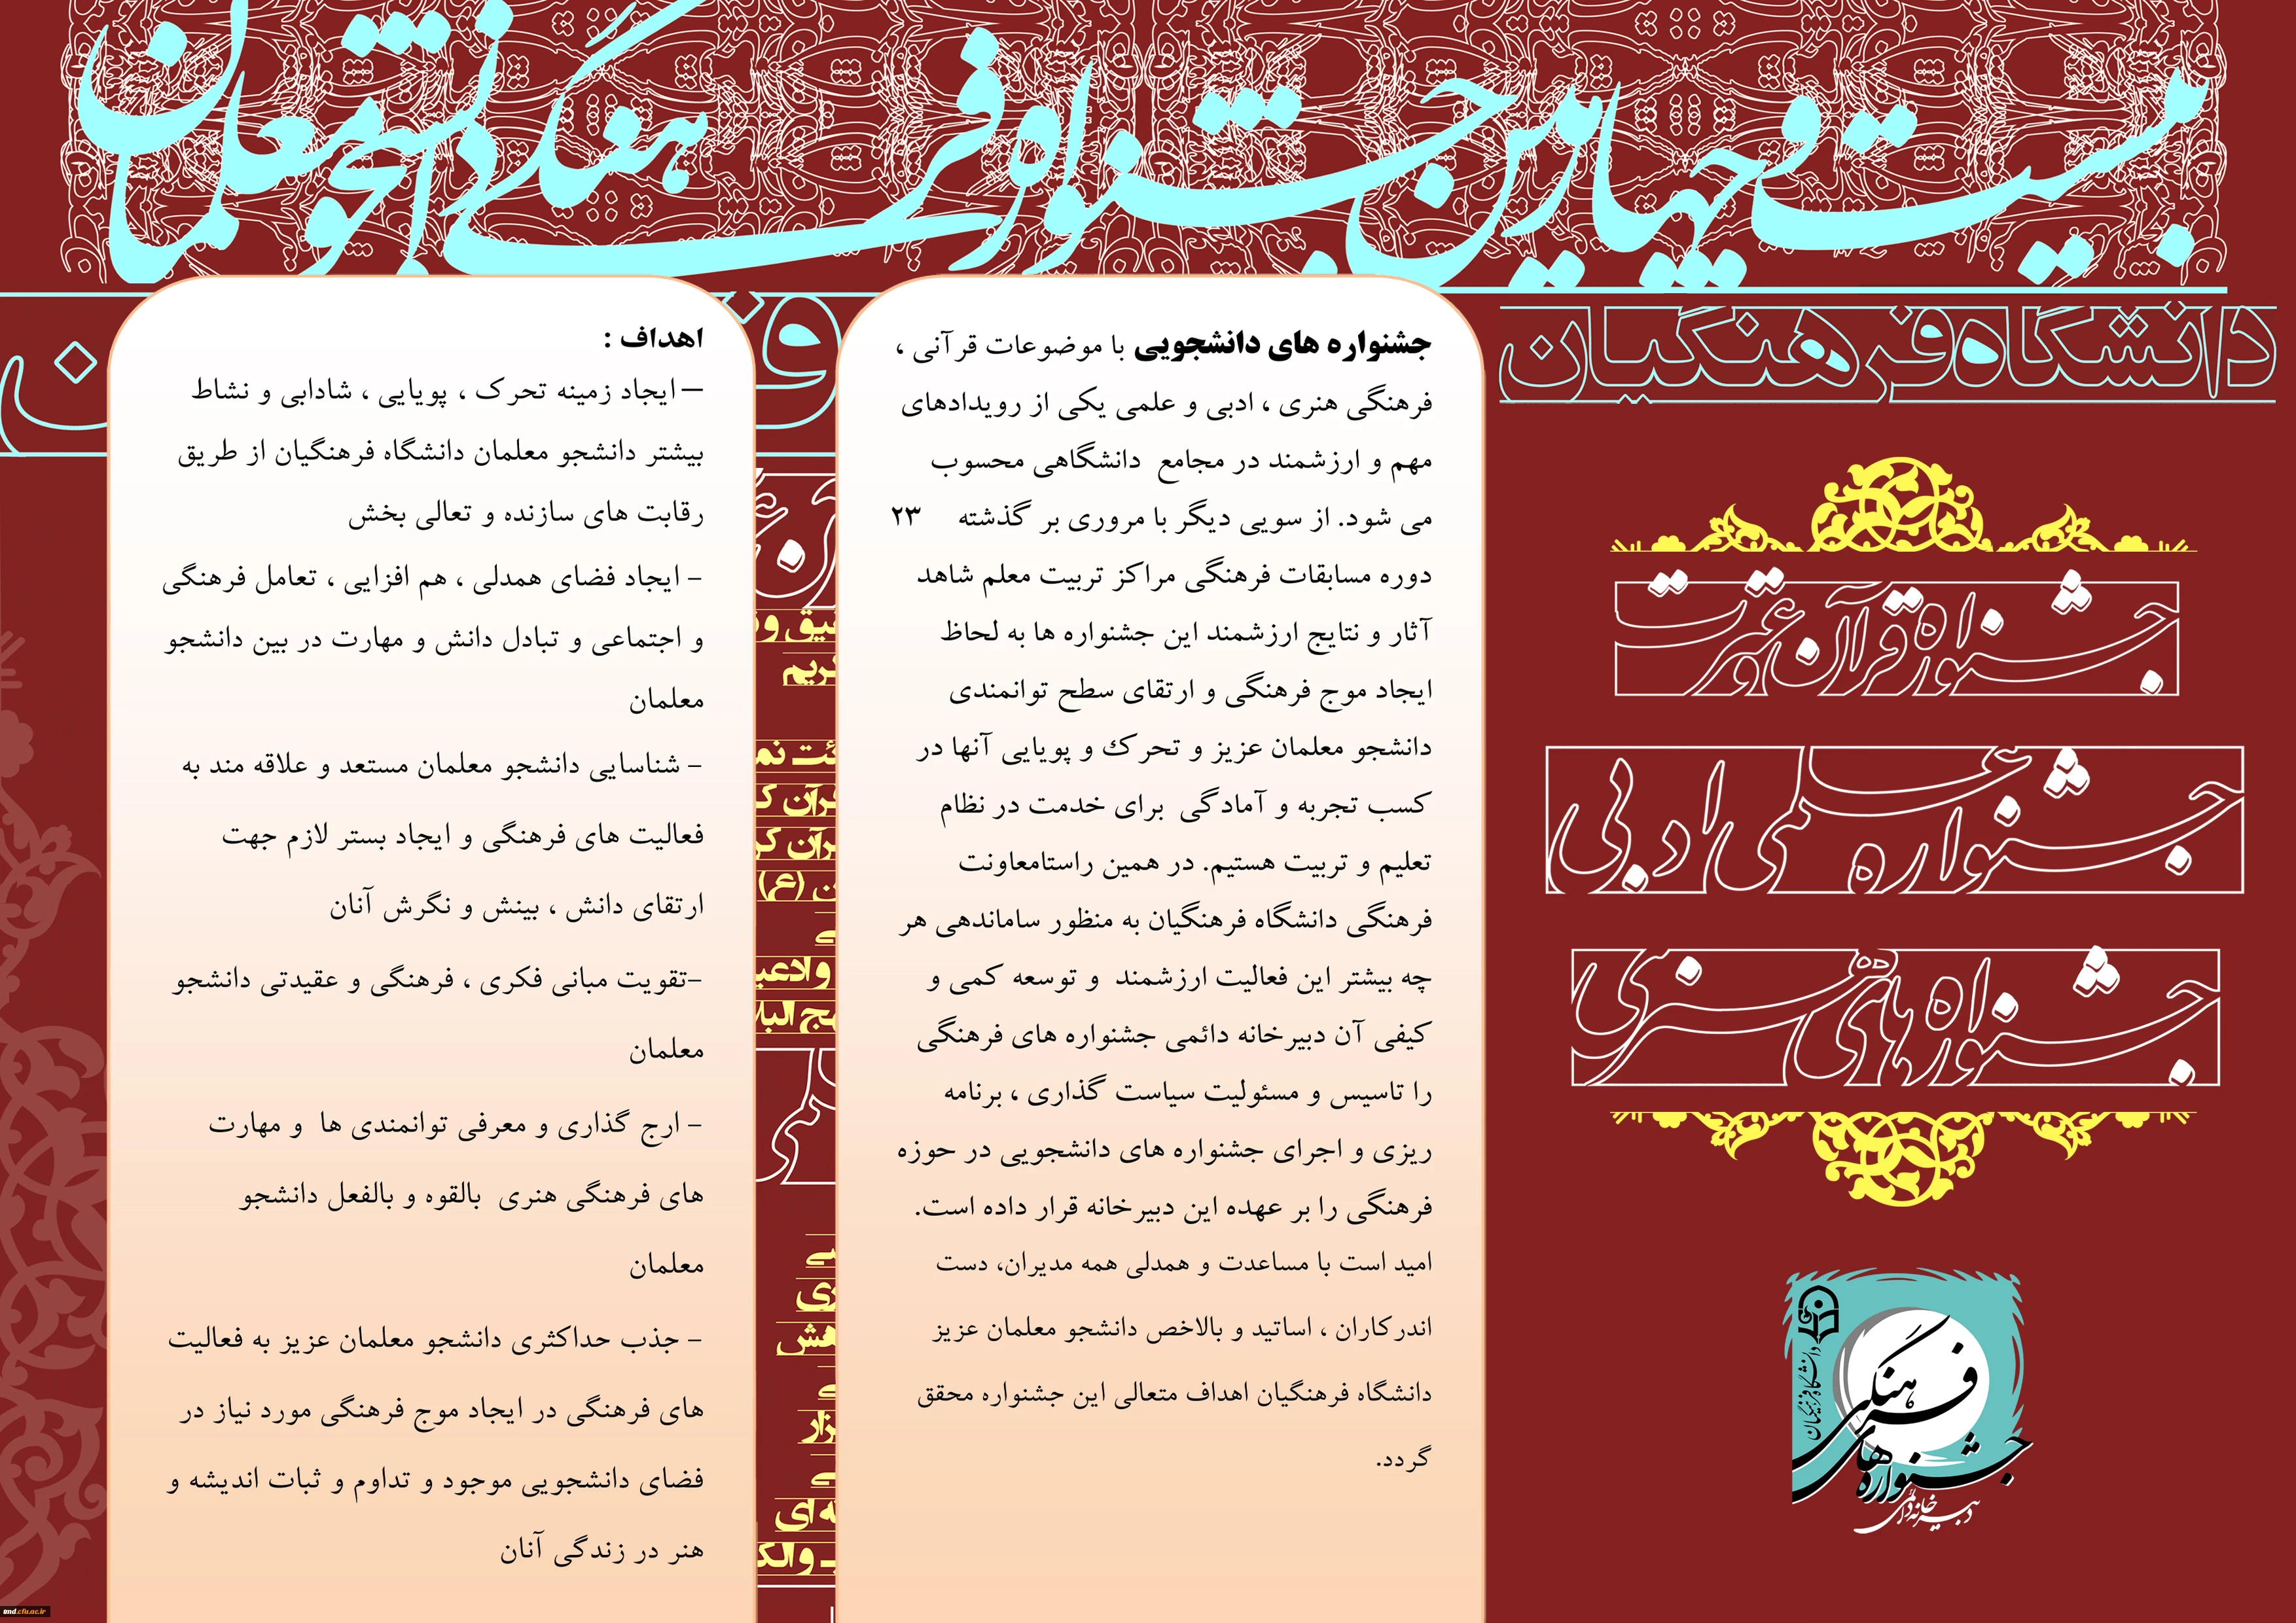 بیست و چهارمین جشنواره فرهنگی دانشجو معلمان
دانشگاه فرهنگیان
جشنواره قرآن و عترت
جشنواره علمی ادبی
جشنواره های هنری
دانشگاه فرهنگیان
جشنواره های فرهنگی
دبیرخانه دائمی
جشنواره های دانشجویی با موضوعات قرآنی ،
فرهنگی هنری ، ادبی و علمی یکی از رویدادهای
مهم و ارزشمند در مجامع دانشگاهی محسوب
می شود. از سویی دیگر با مروری بر گذشته ۲۳
دوره مسابقات فرهنگی مراکز تربیت معلم شاهد
آثار و نتایج ارزشمند این جشنواره ها به لحاظ
ایجاد موج فرهنگی و ارتقای سطح توانمندی
دانشجو معلمان عزیز و تحرك و پویایی آنها در
کسب تجربه و آمادگی برای خدمت در نظام
تعلیم و تربیت هستیم. در همین راستامعاونت
فرهنگی دانشگاه فرهنگیان به منظور ساماندهی هر
چه بیشتر این فعالیت ارزشمند و توسعه کمی و
کیفی آن دبیرخانه دائمی جشنواره های فرهنگی
را تاسیس و مسئولیت سیاست گذاری ، برنامه
ریزی و اجرای جشنواره های دانشجویی در حوزه
فرهنگی را بر عهده این دبیرخانه قرار داده است.
امید است با مساعدت و همدلی همه مدیران، دست
اندرکاران ، اساتید و بالاخص دانشجو معلمان عزیز
دانشگاه فرهنگیان اهداف متعالی این جشنواره محقق
گردد.
اهداف :
– ایجاد زمینه تحرک ، پویایی ، شادابی و نشاط
بیشتر دانشجو معلمان دانشگاه فرهنگیان از طریق
رقابت های سازنده و تعالی بخش
- ایجاد فضای همدلی ، هم افزایی ، تعامل فرهنگی
و اجتماعی و تبادل دانش و مهارت در بین دانشجو
معلمان
- شناسایی دانشجو معلمان مستعد و علاقه مند به
فعالیت های فرهنگی و ایجاد بستر لازم جهت
ارتقای دانش ، بینش و نگرش آنان
-تقویت مبانی فکری ، فرهنگی و عقیدتی دانشجو
معلمان
- ارج گذاری و معرفی توانمندی ها و مهارت
های فرهنگی هنری بالقوه و بالفعل دانشجو
معلمان
- جذب حداکثری دانشجو معلمان عزیز به فعالیت
های فرهنگی در ایجاد موج فرهنگی مورد نیاز در
فضای دانشجویی موجود و تداوم و ثبات اندیشه و
هنر در زندگی آنان